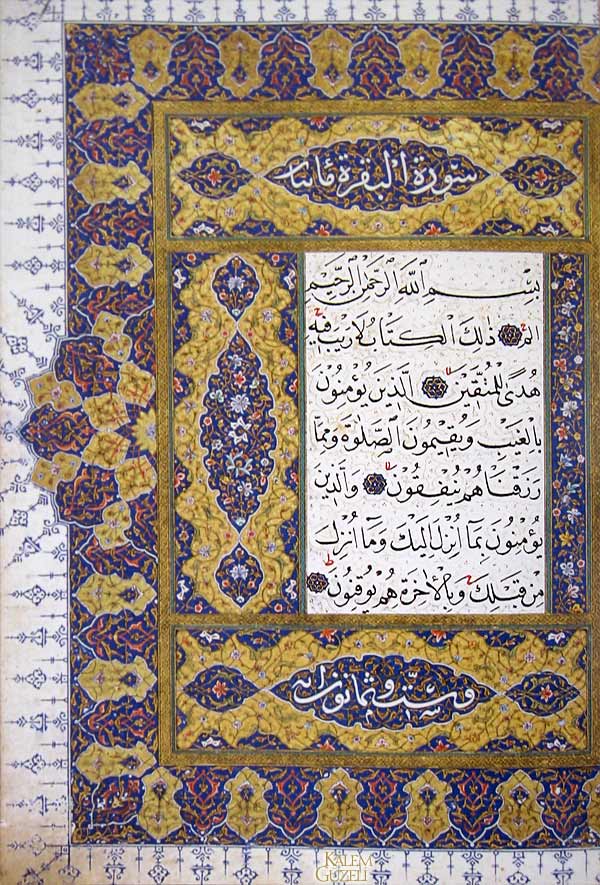 سورة البقرة مائتان
بِسْمِ اللَّهِ الرَّحْمٰنِ الرَّحِيمِ
الم ذٰلِكَ الْكِتَابُ لَا رَيْبَ فِيهِ
هُدًى لِلْمُتَّقِينَ الَّذِينَ يُؤْمِنُونَ
بِالْغَيْبِ وَيُقِيمُونَ الصَّلٰوةَ وَمِمَّا
رَزَقْنَاهُمْ يُنْفِقُونَ وَالَّذِينَ
يُؤْمِنُونَ بِمَا أُنْزِلَ إِلَيْكَ وَمَا أُنْزِلَ
مِنْ قَبْلِكَ وَبِالْاٰخِرَةِ هُمْ يُوقِنُونَ
وست وثمانون آية
KALEM
GÜZELİ